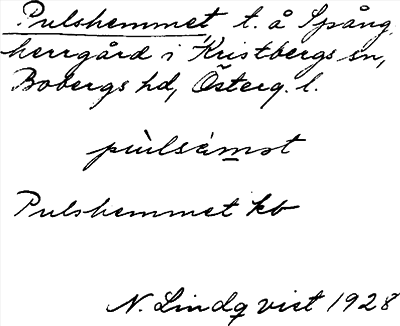 Pulshemmet t. å Spång
herrgård i Kristbergs sn,
Bobergs hd, Österg. l.
pùlsämət
Pulshemmet kb
N. Lindqvist 1928